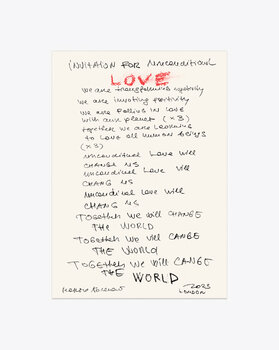 INVITATION FOR UNCONDITIONAL
LOVE
we are transforming negativity
we are invoking positivity
we are falling in love
with our planet (x3)
together we are learning
to love all human beings
(x3)
unconditional love will
CHANGE US
unconditional love will
CHANG US
unconditional love will
CHANG US
TOGETHER WE Will CHANGE
THE WORLD
TOGETHER WE will CANGE
THE WORLD
TOGETHER WE will CANGE
THE WORLD
2023
LONDON